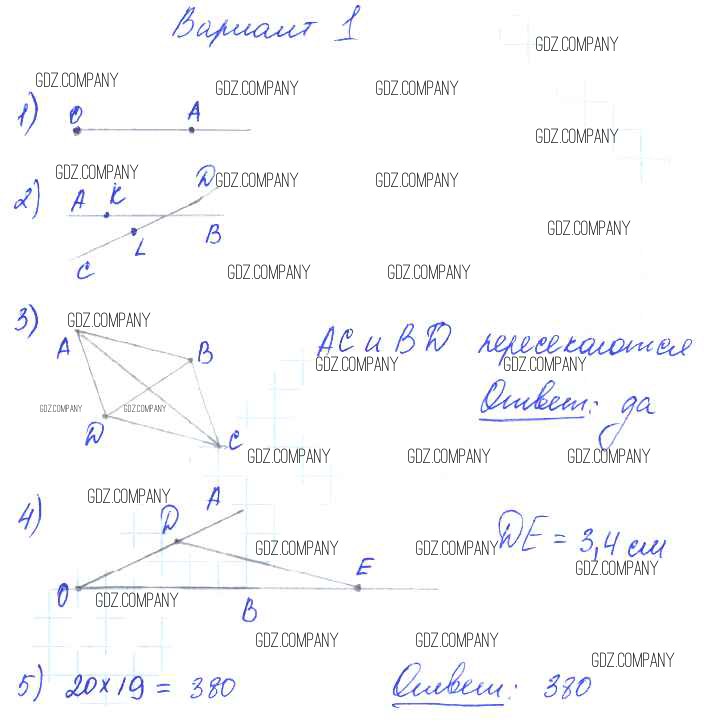 Вариант 1
GDZ.COMPANY
GDZ.COMPANY GDZ.COMPANY GDZ.COMPANY
1) O A
GDZ.COMPANY
GDZ.COMPANY GDZ.COMPANY GDZ.COMPANY
2) A K D
L B
C
GDZ.COMPANY
GDZ.COMPANY GDZ.COMPANY
3) GDZ.COMPANY
A B AC и BD пересекаются
GDZ.COMPANY GDZ.COMPANY
Ответ: да
GDZ.COMPANY GDZ.COMPANY
D C
GDZ.COMPANY GDZ.COMPANY GDZ.COMPANY
GDZ.COMPANY
4) D A
DE = 3,4 см
GDZ.COMPANY GDZ.COMPANY GDZ.COMPANY
O B E
GDZ.COMPANY
GDZ.COMPANY GDZ.COMPANY GDZ.COMPANY
5) 20 × 19 = 380 Ответ: 380